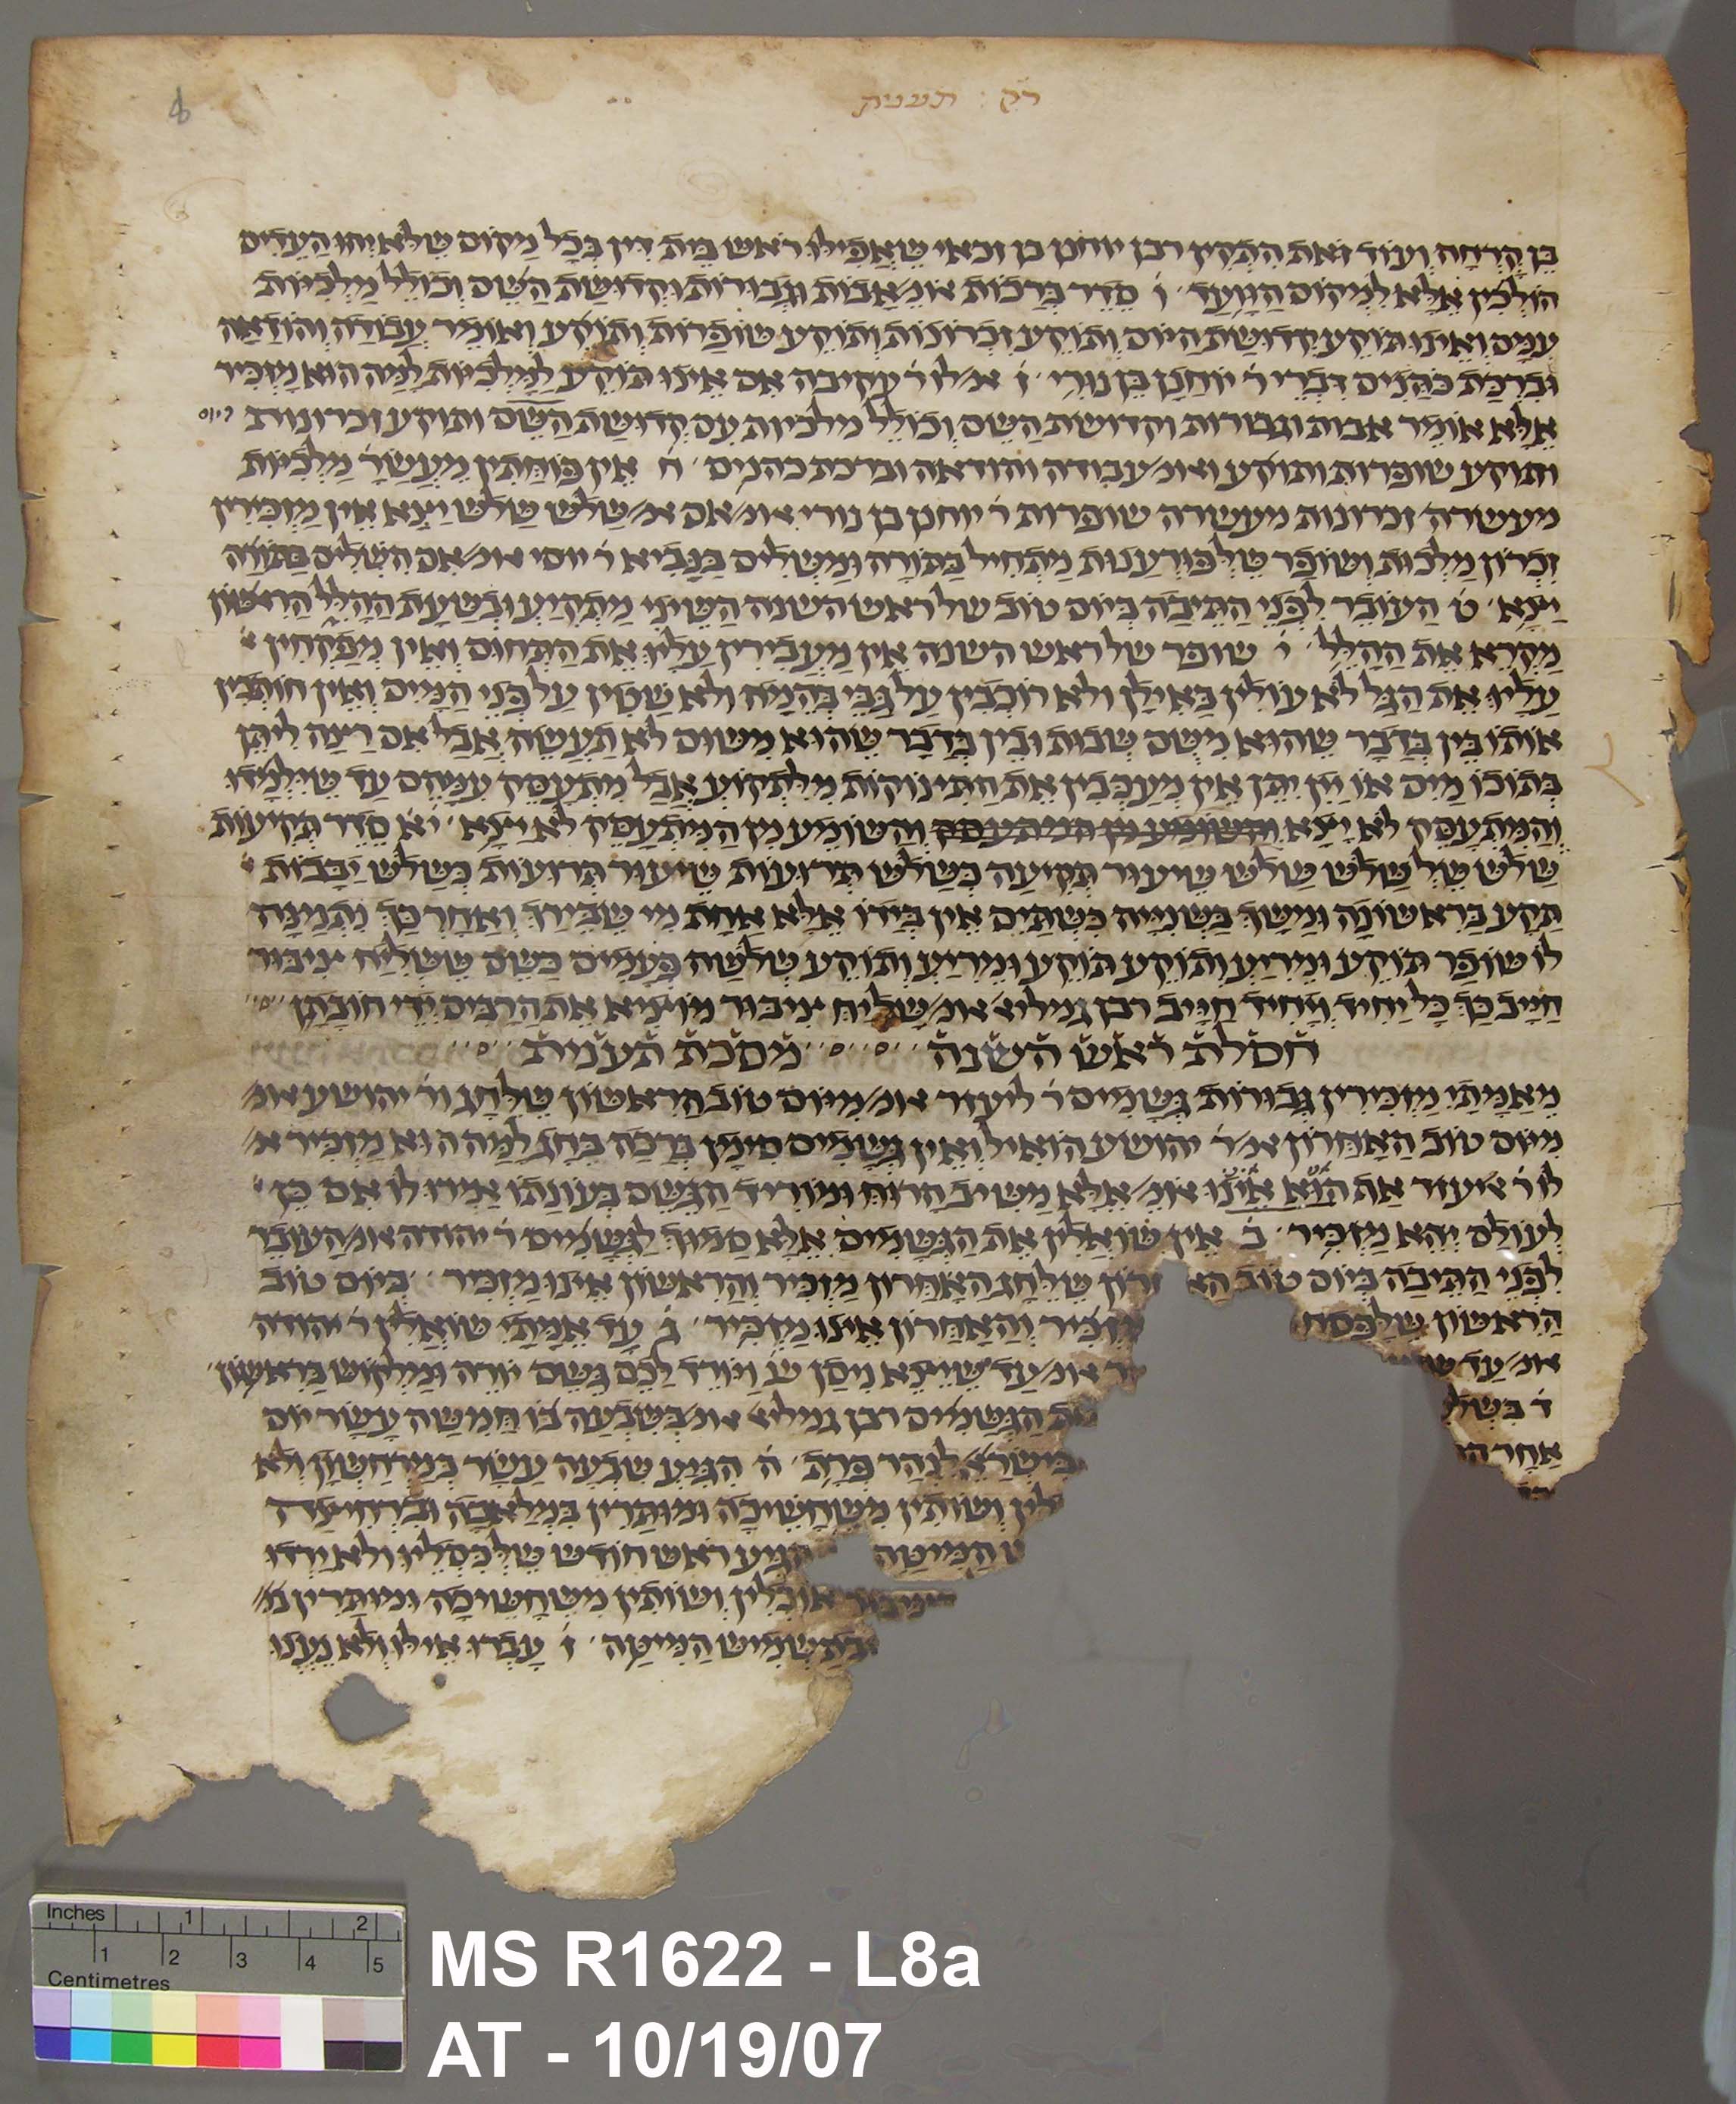 רק : תענית
בן קרחה ועוד זאת התקין רבן יוחנן בן זכאי שאפילו ראש בית דין בכל מקום שלא יהו העדים
הולכין אלא למקום הוועד ׳ ו׳ סדר ברכות אומ׳ אבות וגבורות וקדושת השם וכולל מלכיות
עמם ואינו תוקע קדושת היום ותוקע זכרונות ותוקע שופרות ותוקע ואומר עבודה והודאה
וברכת כהנים דברי ר׳ יוחנן בן נורי ׳ ז׳ אמ׳ לו ר׳ עקיבה אם אינו תוקע למלכיות למה הוא מזכיר
אלא אומר אבות וגבורות וקדושת השם וכולל מלכיות עם קדושת השם ותוקע זכרונות
ותוקע שופרות ותוקע ואומ׳ עבודה והודאה וברכת כהנים ׳ ח׳ אין פוחתין מעשר מלכיות
מעשרה זכרונות מעשרה שופרות ר׳ יוחנן בן נורי אומ׳ אם אמ׳ שלש שלש שלש יצא אין מזכירין
זכרון מלכות ושופר שלפורענות מתחיל בתורה ומשלים בנביא ר׳ יוסי אומ׳ אם השלים בתורה
יצא ׳ ט׳ העובר לפני התיבה ביום טוב שלראש השנה השיני מתקיע ובשעת ההלל הראשון
מקרא את ההלל ׳ י׳ שופר שלראש השנה אין מעבירין עליו את התחום ואין מפקחין
עליו את הגל לא עולין באילן ולא רוכבין על גבי בהמה ולא שטין על פני המים ואין חותכין
אותו בין בדבר שהוא משם שבות ובין בדבר שהוא משום לא תעשה אבל אם רצה ליתן
בתוכו מים או יין יתן אין מעכבין את התינוקות מלתקוע אבל מתעסק עמהם עד שילמדו
והמתעסק לא יצא והשומע מן המתעסק והשומע מן המתעסק לא יצא ׳ יא׳ סדר תקיעות
שלש של שלש שלש שיעור תקיעה כשלש תרועות שיעור תרועות כשלש יבבות
תקע בראשונה ומשך בשנייה כשתים אין בידו אלא אחת מי שבירך ואחר כך נתמנה
לו שופר תוקע ומריע ותוקע תוקע ומריע ותוקע שלשה פעמים כשם ששליח ציבור
חייב כך כל יחיד ויחיד חייב רבן גמליא׳ אומ׳ שליח ציבור מוציא את הרבים ידי חובתן
חסלת ראש השנה מסכת תענית
מאמתי מזכירין גבורות גשמים ר׳ ליעזר אומ׳ מיום טוב הראשון שלחג ור׳ יהושע אומ׳
מיום טוב האחרון אמ׳ ר׳ יהושע הואיל ואין גשמים סימן ברכה בחג למה הוא מזכיר אמ׳
לעולם יהא מזכיר ׳ ב׳ אין שואלין את הגשמים אלא סמוך לגשמים ר׳ יהודה אומ׳ העובר
לפני התיבה ביום טוב הא רון שלחג האחרון מזכיר והראשון אינו מזכיר ׳ ביום טוב
הראשון שלפסח זכיר והאחרון אינו מזכיר ׳ ג׳ עד אמתי שואלין ר׳ יהודה
אומ׳ עד ר אומ׳ עד שייצא ניסן ש׳ ויורד לכם גשם יורה ומלקוש בראשון
ד׳ בשל ת הגשמים רבן גמליא׳ אומ׳ בשבעה בו חמשה עשר יום
אחר לנהר פרת ׳ ה׳ הגיע שבעה עשר במרחשון ולא
לין ושותין משחשיכה ומותרין במלאכה וברחיצה
ש המיטה הגיע ראש חודש שלכסליו ולא ירדו
אוכלין ושותין משחשיכה ומותרין במ׳
בתשמיש המיטה ׳ ז׳ עברו אילו ולא נענו
Inches 1 2
1 2 3 4 5
Centimetres
MS R1622 - L8a
AT - 10/19/07